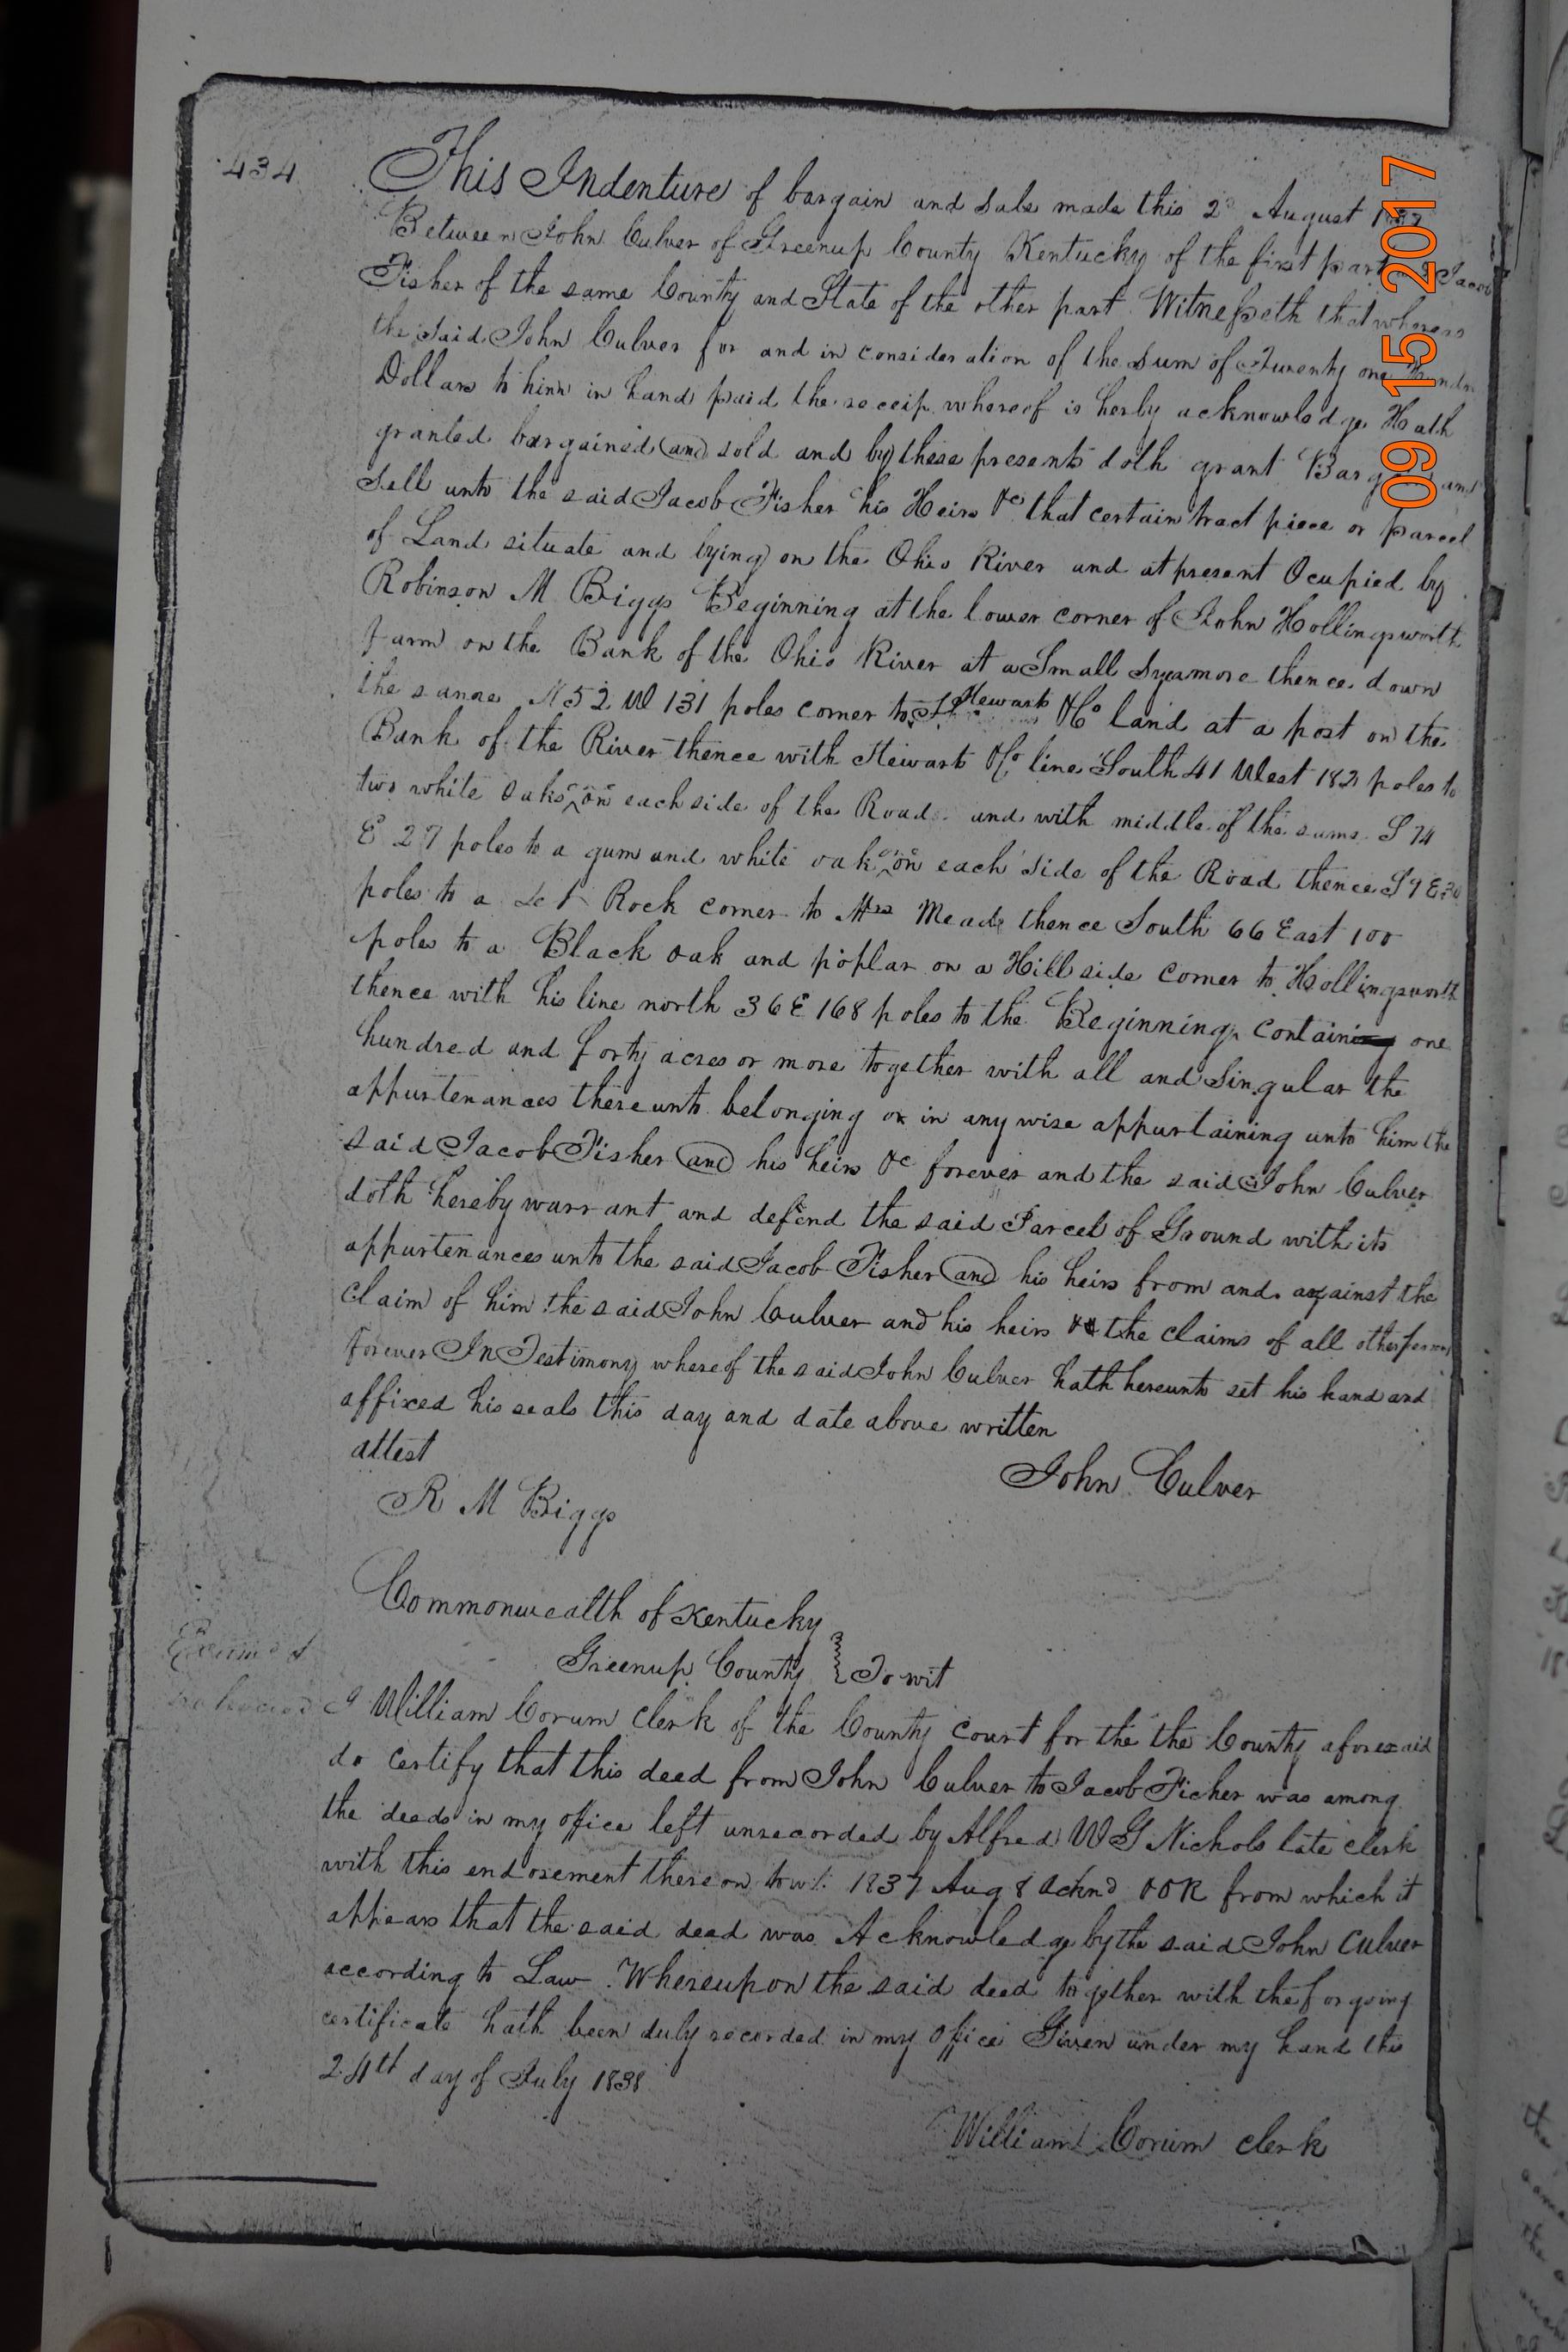 434
This Indenture of bargain and Sale made this 2d August 1837
Between John Culver of Greenup County Kentucky of the first part & Jacob
Fisher of the same County and State of the other part Witnesseth that whereas
the said John Culver for and in consideration of the Sum of Twenty one Hundr
Dollars to him in hand paid the receip whereof is herby acknowledge Hath
granted bargained and sold and by these presents doth grant Barg and
Sell unto the said Jacob Fisher his Heirs &c that certain tract piece or parcel
of Land situate and lying on the Ohio River and at present Ocupied by
Robinson M Biggs Beginning at the lower corner of John Hollingsworth
farm on the Bank of the Ohio River at a Small Sycamore thence down
the same N 52 W 131 poles corner to Stewarts &Co land at a post on the
Bank of the River thence with Stewarts &Co line South 41 West 182 poles to
two white oaks one on each side of the Road and with middle of the same S 74
E 27 poles to a gum and white oak one on each side of the Road thence S 9 E 30
poles to a Set Rock corner to Mrs Meads thence South 66 East 100
poles to a Black oak and poplar on a Hill side corner to Hollingsworth
thence with his line north 36 E 168 poles to the Beginning containing one
hundred and forty acres or more together with all and Singular the
appurtenances thereunto belonging or in any wise appurtaining unto him the
said Jacob Fisher and his heirs &c forever and the said John Culver
doth hereby warrant and defend the said Parcel of Ground with its
appurtenances unto the said Jacob Fisher and his heirs from and against the
claim of him the said John Culver and his heirs & the claims of all other persons
forever In Testimony whereof the said John Culver hath hereunto set his hand and
affixed his seals this day and date above written
attest
John Culver
R M Biggs
Commonwealth of Kentucky
Greenup County } To wit
Examined
I William Corum clerk of the County court for the the County aforesaid
do certify that this deed from John Culver to Jacob Ficher was among
the deeds in my office left unrecorded by Alfred W G Nichols late clerk
with this endorsement thereon towt: 1837 Aug 8 Acknd & O R from which it
appears that the said deed was Acknowledge by the said John Culver
according to Law Whereupon the said deed together with the forgoing
certificate hath been duly recorded in my office Given under my hand this
24th day of July 1838
William Corum clerk
09 15 2017